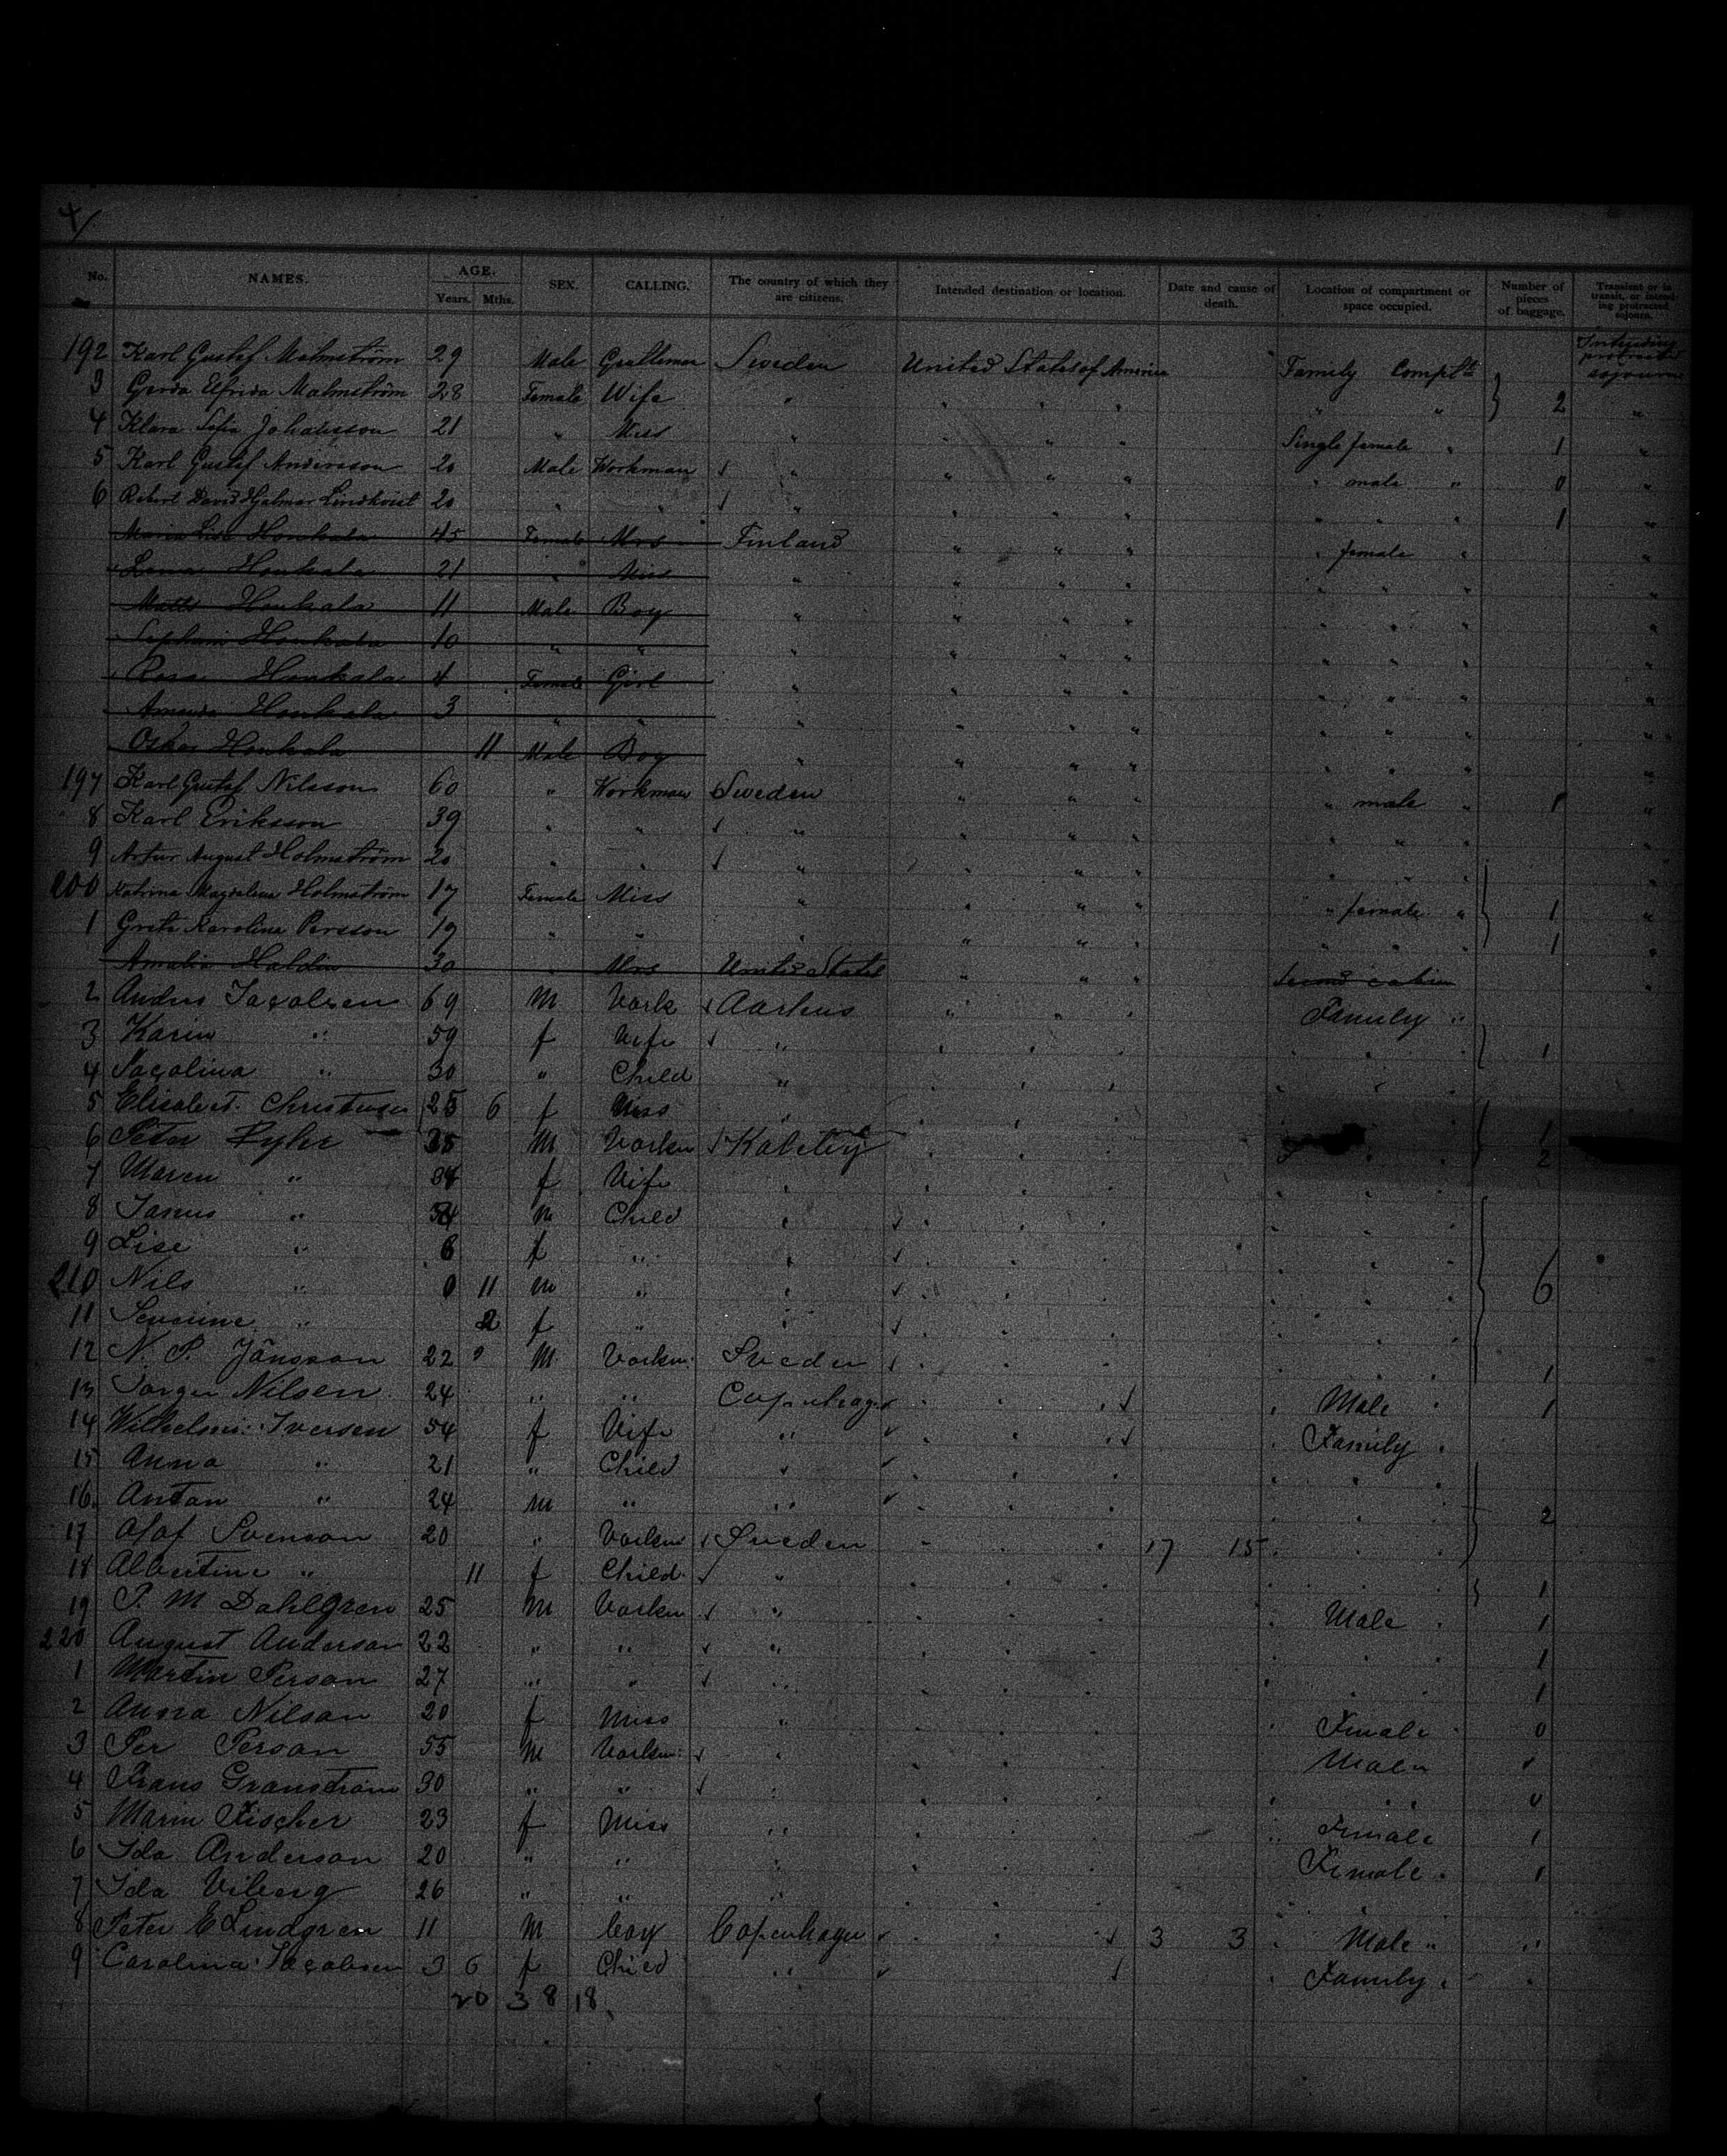 4/
No. NAMES. AGE. Years. Mths. SEX. CALLING. The country of which they are citizens. Intended destination or location. Date and cause of death. Location of compartment or space occupied. Number of pieces of baggage. Transient or in transit, or intending protracted sojourn.
192 Karl Gustaf Malmström 29 Male Gentleman Sweden United States of America Family Complt Intending protracted sojourn
3 Gerda Elfrida Malmström 28 Female Wife " " " " " " 2 "
4 Klara Sofia Johansson 21 " Miss " " " " Single female " 1 "
5 Karl Gustaf Andersson 20 Male Workman " " " " " male " 0 "
6 Robert David Hjalmar Lindkvist 20 " " " " " " " " " 1 "
Maria Lisa Honkala 45 Female Mrs Finland " " " " female " "
Lena Honkala 21 " Miss " " " " " " " "
Matts Honkala 11 Male Boy " " " " " " " "
Honkala 10 " " " " " " " " " "
Rosa Honkala 4 Female Girl " " " " " " " "
Amanda Honkala 3 " " " " " " " " " "
Oskar Honkala 11 Male Boy " " " " " " " "
197 Karl Gustaf Nilsson 60 " Workman Sweden " " " " male " 1 "
8 Karl Eriksson 39 " " " " " " " " " "
9 Artur August Holmström 20 " " " " " " " " " "
200 Katrina Magdalena Holmström 17 Female Miss " " " " " female " 1 "
1 Greta Karolina Persson 19 " " " " " " " " " 1 "
Amalia Haldin 30 " Mrs United States " " " Second cabin "
2 Andrs Jacobsen 69 M Work Aarhus " " " Family "
3 Karin " 59 f Wife " " " " " " " 1
4 Jacolina " 30 " Child " " " " " " "
5 Elisabet Christensen 25 6 f Miss " " " " " " 1
6 Peter Ryhr M Workm " " " " " 2
7 Maren " f Wife " " " " " " "
8 " M Child " " " " " " "
9 Lise " 6 f " " " " " " " "
210 Nils " 0 11 m " " " " " " " " 6
11 " 2 f " " " " " " " "
12 N. P. Jönsson 22 " M Workm. Sweden " " " " " " 1
13 Nilsen 24 " " Copenhagen " " " " Male " 1
14 Iversen 54 f Wife " " " " " Family "
15 Anna " 21 " Child " " " " " " "
16 Anton " 24 m " " " " " " " " 2
17 Olaf Svenson 20 " Workm Sweden " " " 17 15 " " "
18 Albertine " 11 f Child " " " " " " " 1
19 P. M Dahlgren 25 M Workm " " " " " Male " 1
220 August Anderson 22 " " " " " " " " " 1
1 Martin Person 27 " " " " " " " " " 1
2 Anna Nilson 20 f Miss " " " " " Female " 0
3 Per Person 55 M Workm. " " " " Male
4 Frans Granström 30 " " " " " " " " " 0
5 Marin Fischer 23 f Miss " " " " " Female 1
6 Ida Anderson 20 " " " " " " Female " 1
7 Ida Viberg 26 " " " " " " " " "
8 Peter E Lindgren 11 M boy Copenhagen " " 3 3 " Male " "
9 Carolina Jacobsen 3 6 f Child " " " Family " "
20 38 18